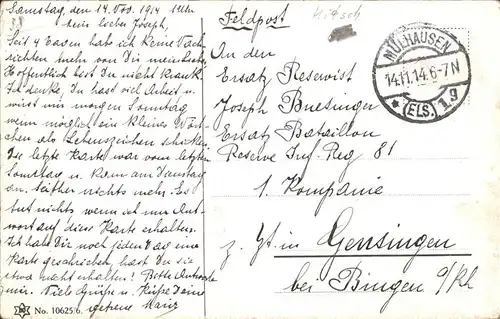 Samstag, den 14. Nov. 1914 1 Uhr
Mein lieber Joseph,
Seit 4 Tagen hab ich keine Nach
richten mehr von Dir mein
Hoffentlich bist Du nicht krank.
Ich denke, Du hast viel Arbeit u.
wirst mir morgen Sonntag
wenn möglich ein kleines Wört
chen als Lebenszeichen schicken.
Die letzte Karte war vom letzten
Sonntag u. kam am Dienstag
an. Seither nichts mehr. Es
tut nichts wenn ich nur Ant
wort auf diese Karte erhalten.
Ich hab Dir noch jeden Tag eine
Karte geschrieben, hast Du sie
etwa nicht erhalten? Bitte Antworte
mir. Viele Grüße u. Küße Deine
getreue
No. 10625/6.
Feldpost
An den
Ersatz Reservist
Joseph
Ersatz Bataillon
Reserve Inf. Reg 81
1. Kompanie
z. Zt. in Gensingen
bei Bingen a/Rh
MÜLHAUSEN
14.11.14.6-7N
* (ELS.) 1g